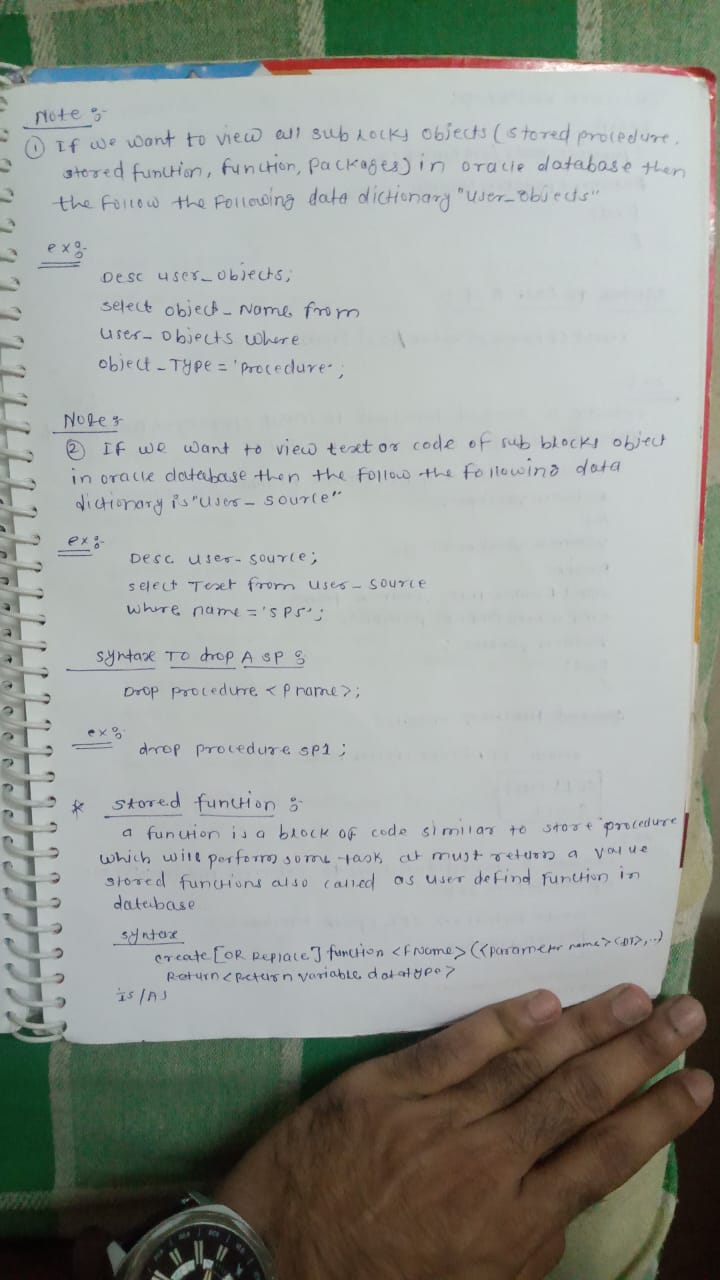 Note :-
① If we want to view all sub locks objects (stored procedure,
stored function, function, packages) in oracle database then
the follow the following data dictionary "user_objects"
ex :-
Desc user_objects;
select object_Name from
user_objects where
object_Type = 'procedure';
Note :
② If we want to view text or code of sub blocks object
in oracle database then the follow the following data
dictionary is "user_source"
ex :-
Desc user_source;
select Text from user_source
where name = 'SP5';
syntax To drop A SP :
Drop procedure <Pname>;
ex :-
drop procedure sp1;
* stored function :-
a function is a block of code similar to store procedure
which will perform some task at must return a value
stored functions also called as user defind function in
database
syntax
create [OR Replace] function <FName> (<parameter name> <DT>,..)
Return <Return variable datatype>
is/AS